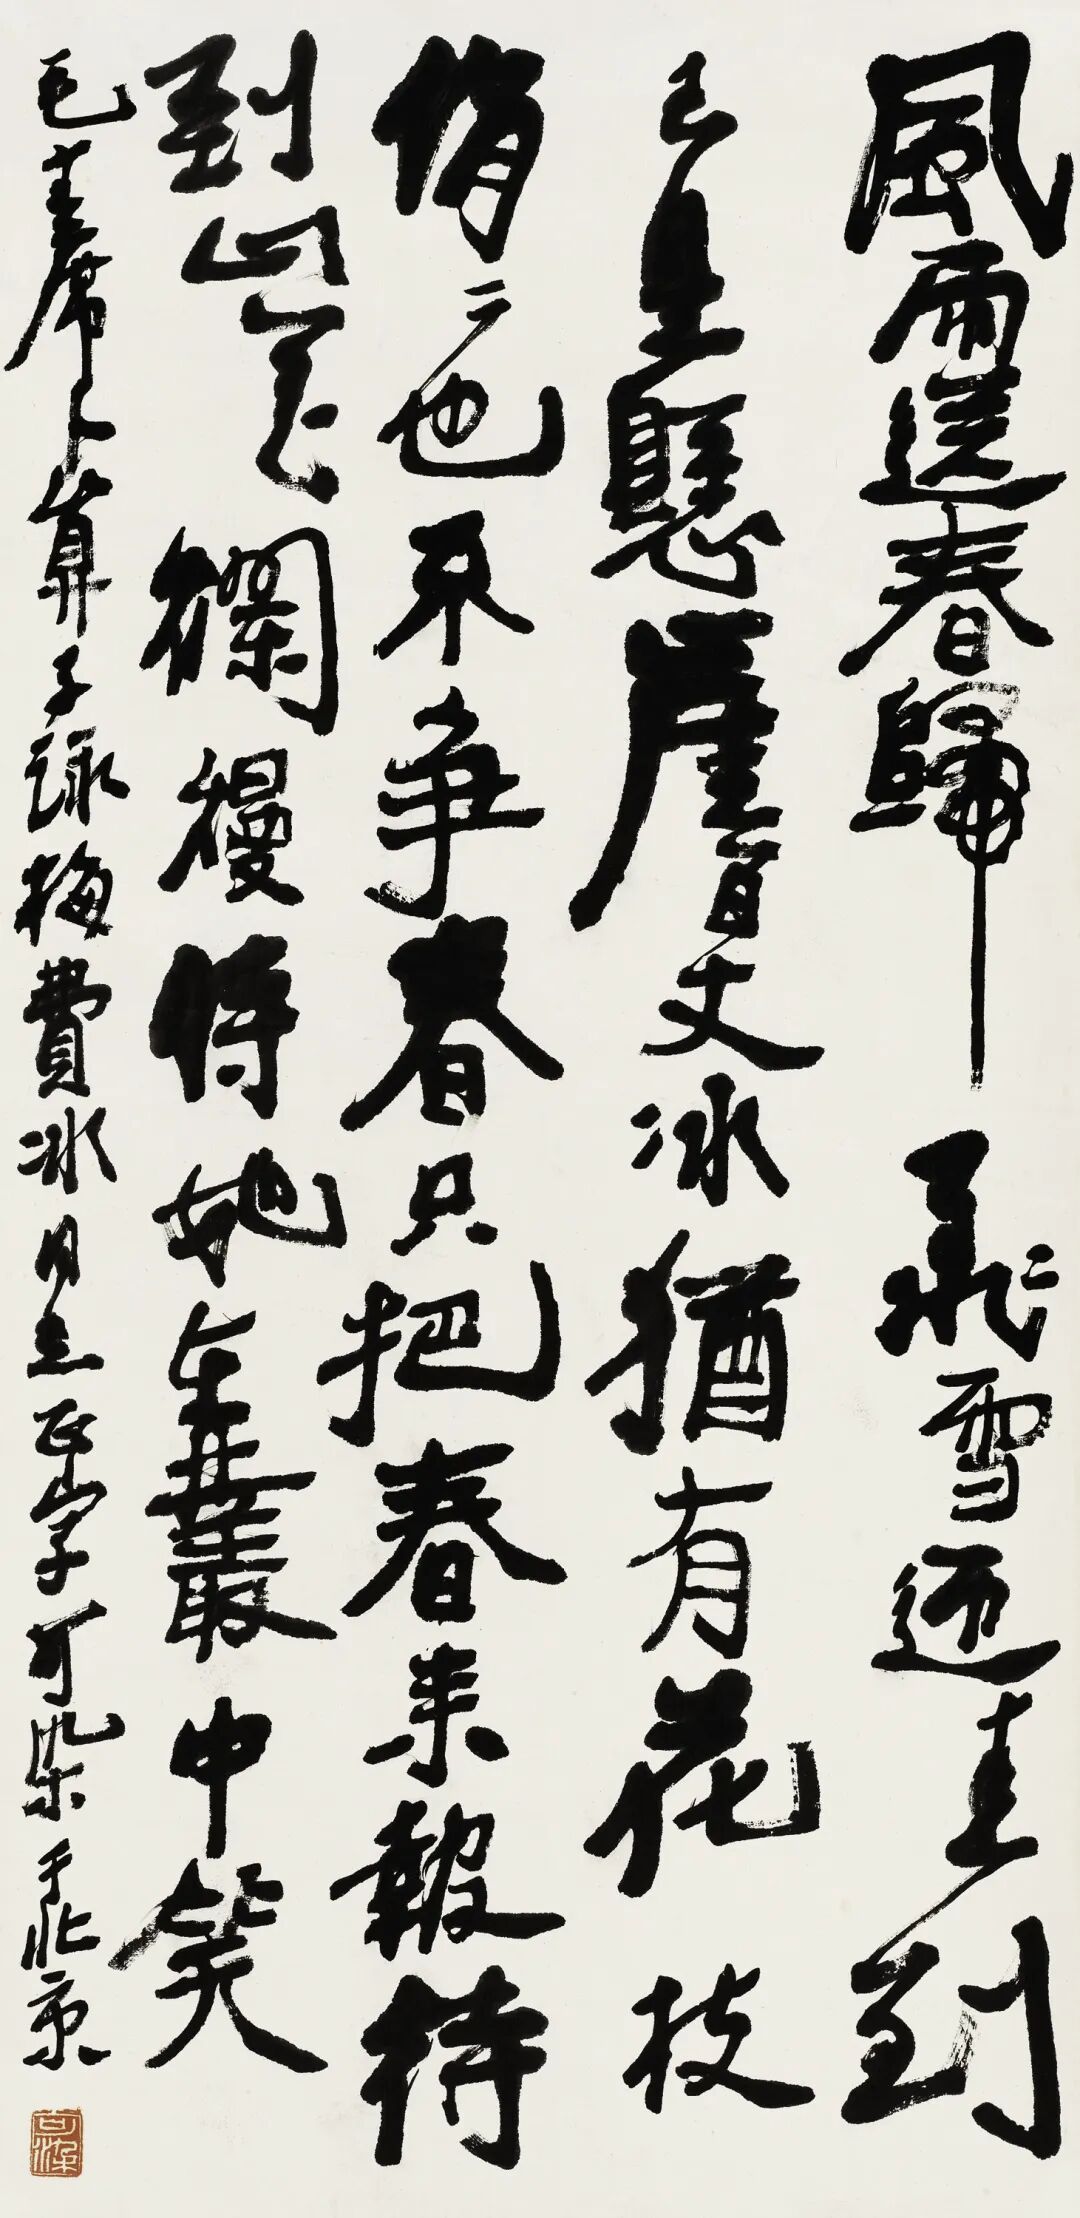 風雨送春歸飛雪迎春到
已是懸崖百丈冰猶有花枝
俏〻也不争春只把春来報待
到山花爛熳時她在叢中笑
毛主席卜算子詠梅費冰同志正字可染于北京
可染